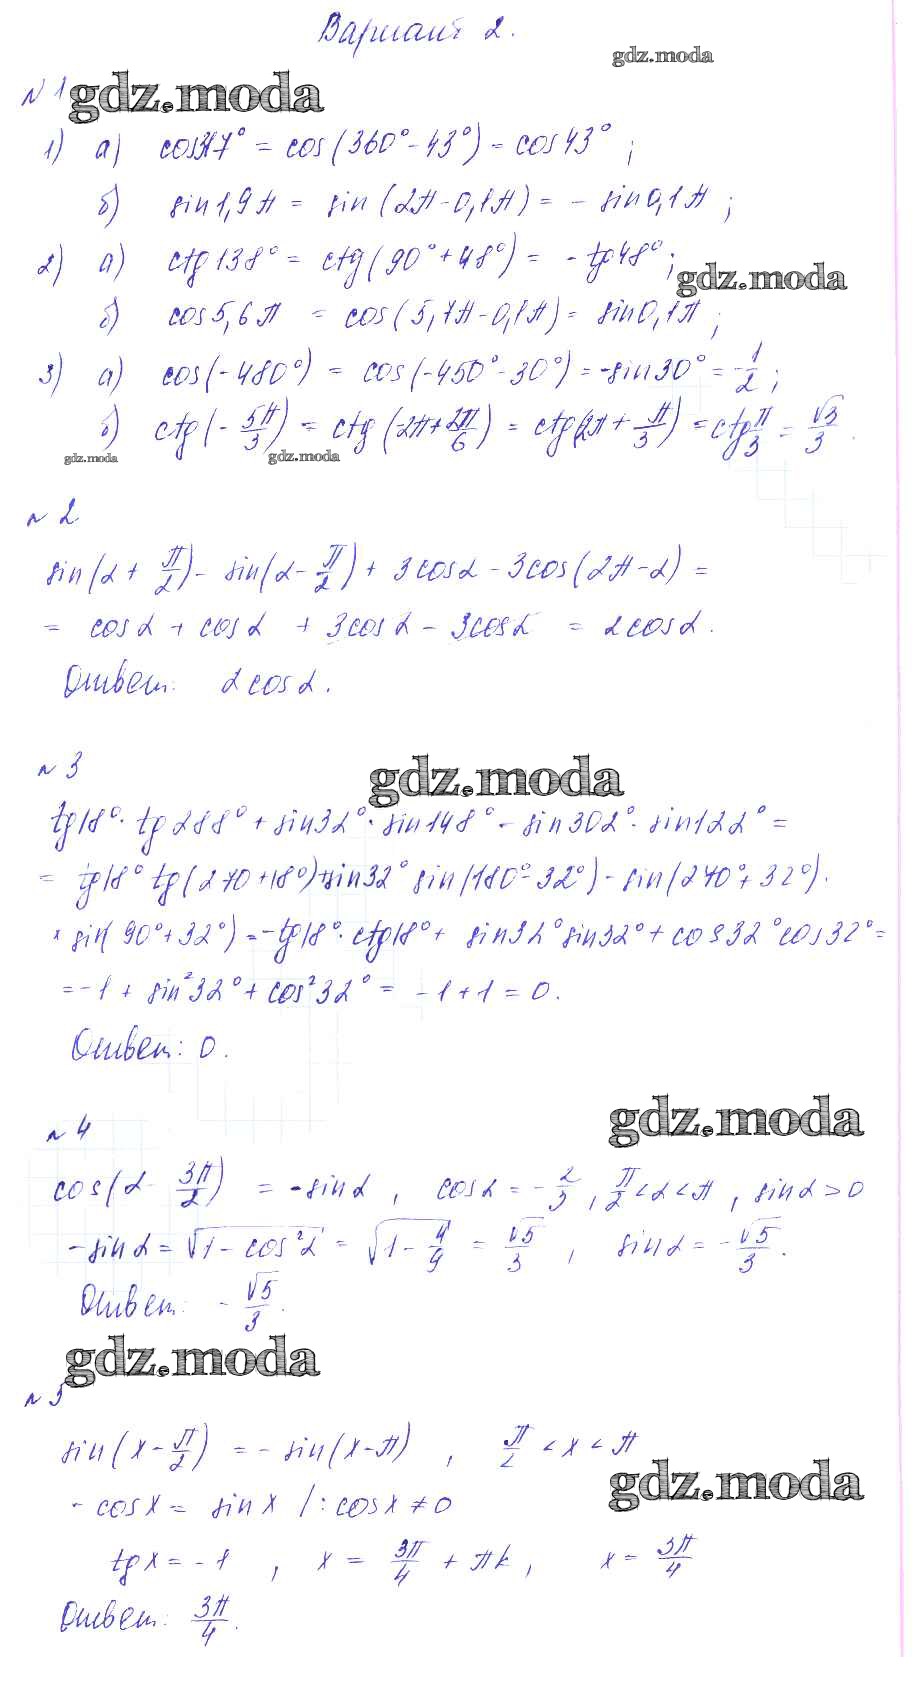 Вариант 2.
gdz.moda
№1 gdz.moda
1) а) cos317° = cos(360°-43°) = cos43° ;
б) sin1,9π = sin(2π-0,1π) = - sin0,1π ;
2) а) ctg138° = ctg(90°+48°) = -tg48° ;
gdz.moda
б) cos5,6π = cos(5,7π-0,1π) = sin0,1π ;
3) а) cos(-480°) = cos(-450°-30°) = -sin30° = -1/2 ;
б) ctg(-5π/3) = ctg(-2π+2π/6) = ctg(2π+π/3) = ctgπ/3 = √3/3 .
gdz.moda gdz.moda
№2
sin(α+π/2) - sin(α-π/2) + 3cosα - 3cos(2π-α) =
= cosα + cosα + 3cosα - 3cosα = 2cosα.
Ответ: 2cosα.
№3 gdz.moda
tg18°·tg288° + sin32°·sin148° - sin302°·sin122° =
= tg18° tg(270+18°)+sin32° sin(180°-32°) - sin(270°+32°)·
× sin(90°+32°) = -tg18°·ctg18° + sin32°sin32° + cos32°cos32° =
= -1 + sin²32° + cos²32° = -1+1 = 0.
Ответ: 0.
gdz.moda
№4
cos(α-3π/2) = -sinα , cosα = -2/3 , π/2<α<π , sinα>0
-sinα = √1-cos²α = √1-4/9 = √5/3 , sinα = -√5/3 .
Ответ: -√5/3 .
gdz.moda
№5
sin(x-π/2) = - sin(x-π) , π/2 < x < π
gdz.moda
- cosx = sinx /:cosx ≠ 0
tgx = -1 , x = 3π/4 + πk , x = 3π/4
Ответ: 3π/4 .